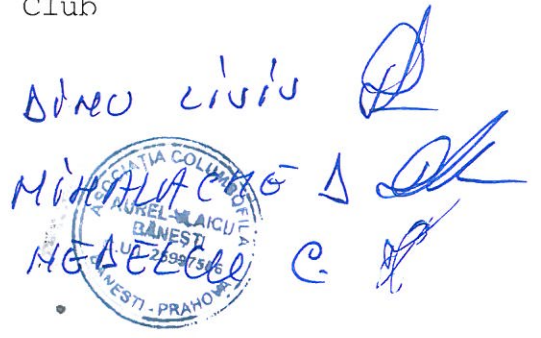 Club
DINU LIVIU
MIHALACHE D
NEDELCU C.
ASOCIATIA COLUMBOFILA
AUREL VLAICU
BĂNEŞTI
BĂNEŞTI - PRAHOVA